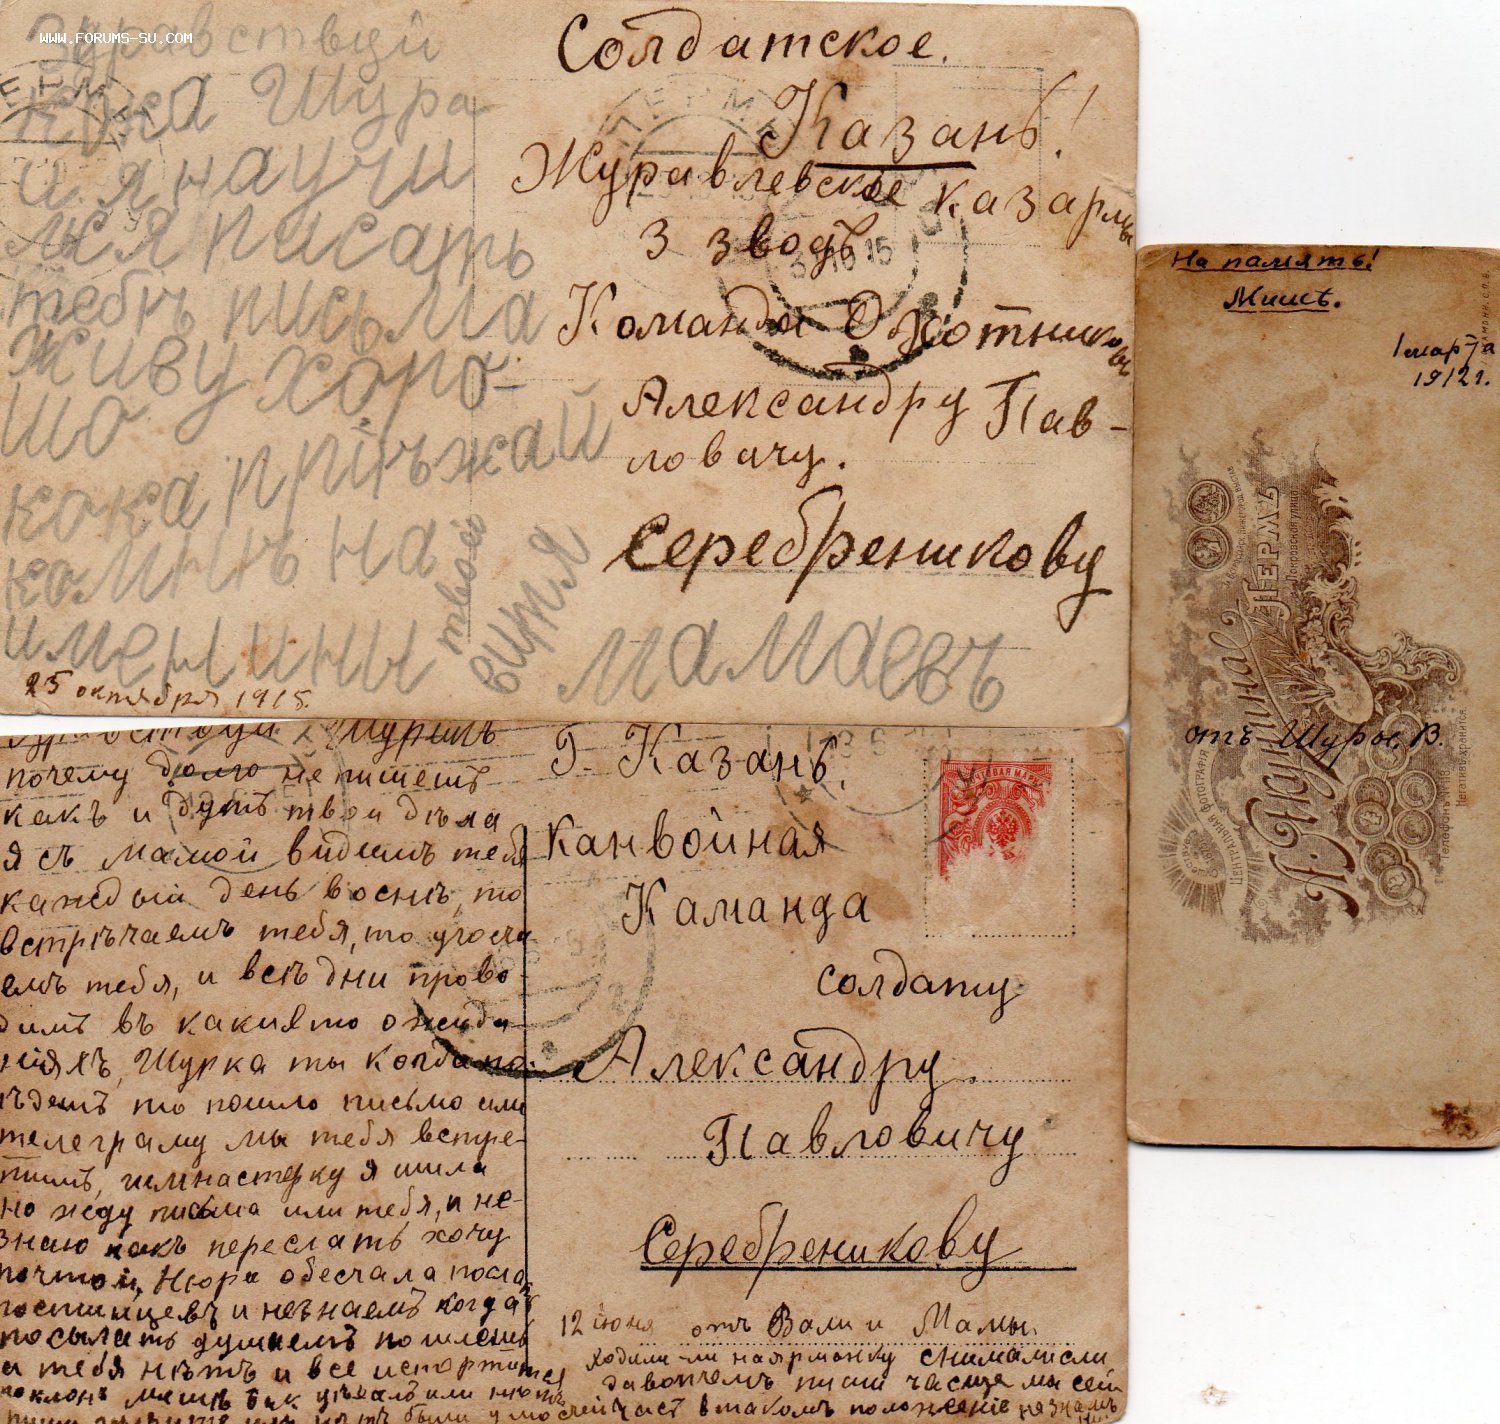 www.forums-su.com
Здравствуй
кока Шура
и я научи
лся писать
тебѣ письма
живу хоро-
шо
кока пріѣжай
ко мнѣ на
именины
твой
витя
Мамаевъ
25 октября 1915.
Солдатское.
Казань!
Журавлевское казармы
3 зводъ
Команды Охотниковъ
Александру Пав-
ловичу.
Серебреникову
ПЕРМЬ
На память!
Мишѣ.
1 марта
1912 г.
отъ Шуры В.
ПЕРМЬ
Покровская улица
Центральная фотографія
Телефонъ № 118.
Негативъ хранится
почему долго не пишешъ
какъ идутъ твои дѣла
я съ мамой видимъ тебя
каждый день во снѣ, то
встрѣчаемъ тебя, то угоща
емъ тебя, и всѣ дни прово-
димъ въ какиято ожида
ніяхъ, Шурка ты когда по-
ѣдешъ то пошло письмо или
телеграму мы тебя встре-
тимъ, гимнастерку я шила
но жду письма или тебя, и не-
знаю какъ переслать хочу
почтой, Нюра обесчала послать
гостинцевъ и незнаемъ когда
посылать думаемъ пошлешь
а тебя нѣтъ и все испортится
поклонъ
Г. Казань.
Канвойная
Каманда
солдату
Александру
Павловичу
Серебреникову
12 іюня отъ Вали и Мамы.
ходили-ли на ярмонку снимались ли
пиши чаще мы сей
часъ в такомъ положеніе незнаемъ